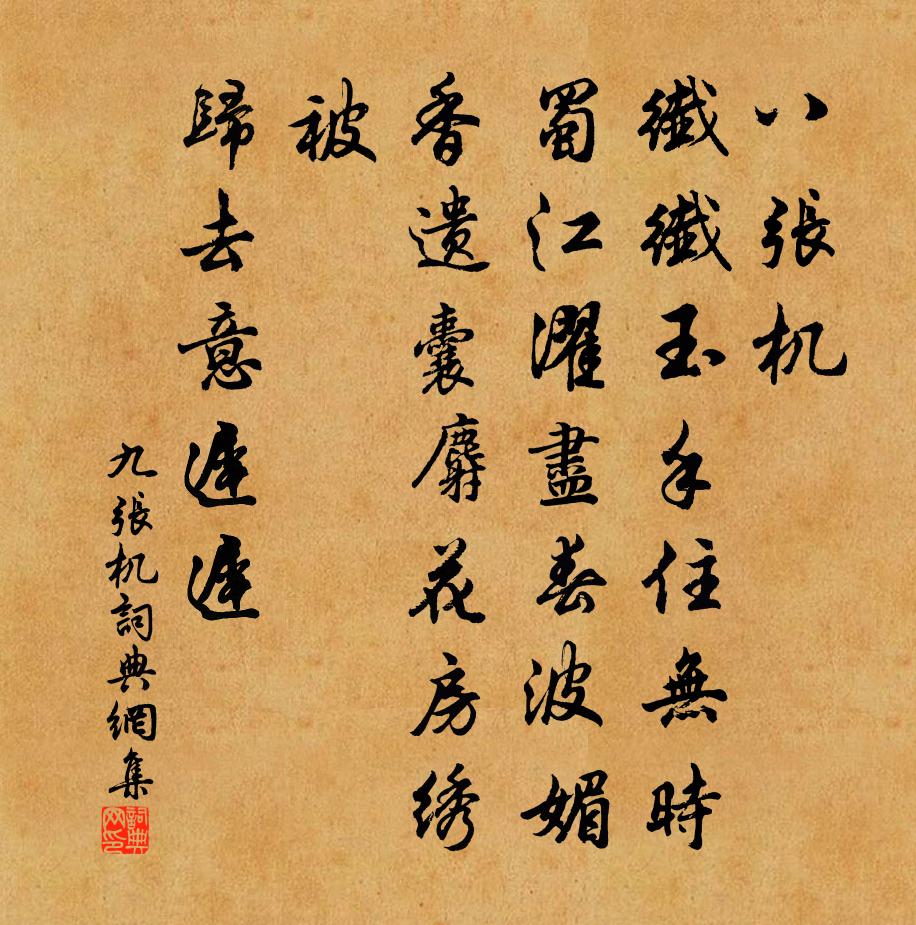 八張机
纖纖玉手住無時
蜀江濯盡春波媚
香遺囊麝花房绣
被
歸去意遲遲
九張机詞典網集
詞典网印